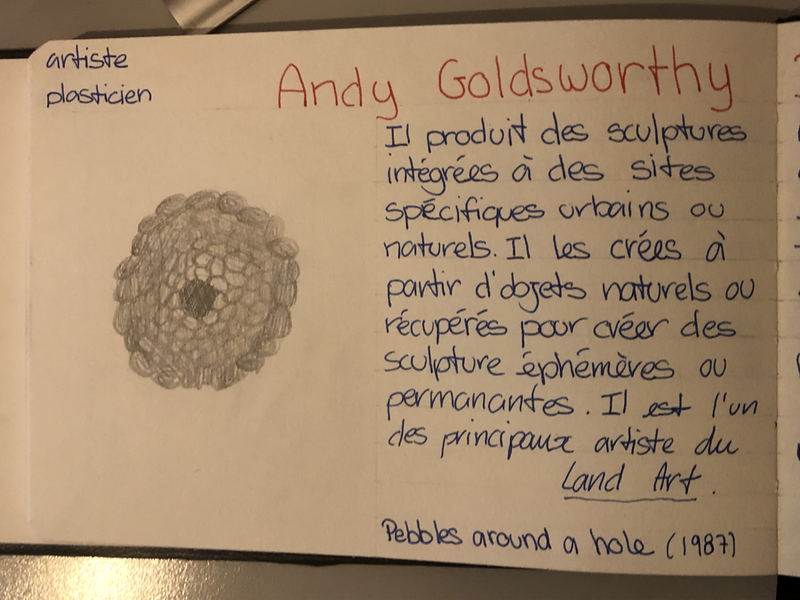 artiste
plasticien
Andy Goldsworthy
Il produit des sculptures
intégrées à des sites
spécifiques urbains ou
naturels. Il les crées à
partir d'objets naturels ou
récupérés pour créer des
sculpture éphémères ou
permanantes. Il est l'un
des principaux artiste du
Land Art.
Pebbles around a hole (1987)